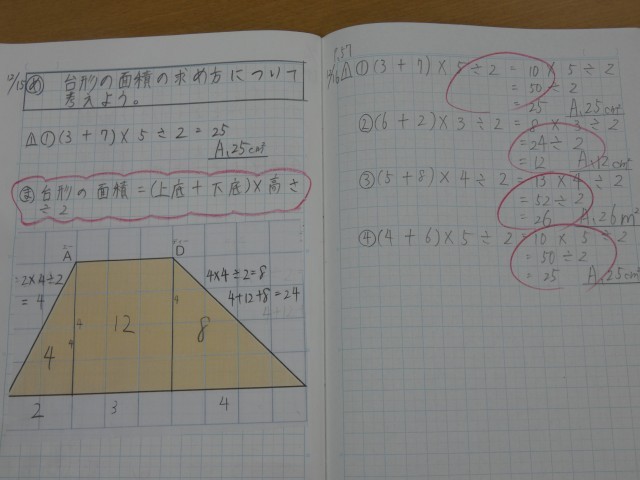 12/15 め 台形の面積の求め方について
考えよう。
△①(3+7)×5÷2=25
A.25cm²
ま 台形の面積=(上底+下底)×高さ
÷2
A
D
2×4÷2
=4
4×4÷2=8
4+12+8=24
4
12
8
4
4
4
2
3
4
P.57
12/16 △①(3+7)×5÷2=10×5÷2
=50÷2
=25 A.25cm²
②(6+2)×3÷2=8×3÷2
=24÷2
=12 A.12cm²
③(5+8)×4÷2=13×4÷2
=52÷2
=26 A.26m²
④(4+6)×5÷2=10×5÷2
=50÷2
=25 A.25cm²